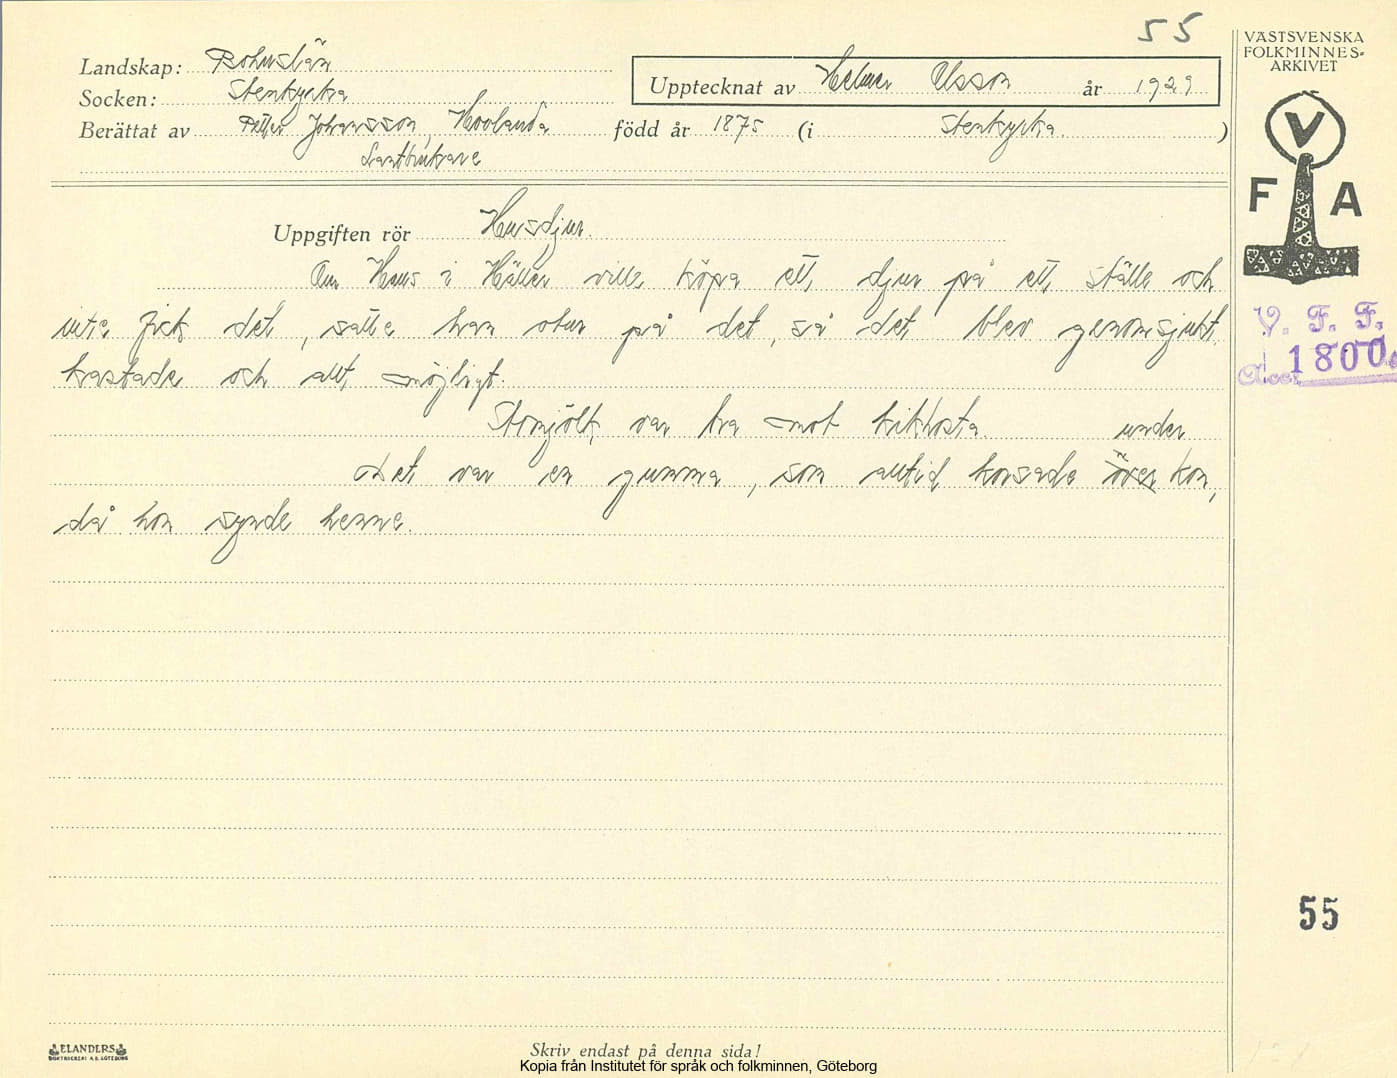 55
VÄSTSVENSKA
FOLKMINNES-
ARKIVET
Landskap: Bohuslän
Socken: Stenkyrka
Upptecknat av Helmer Olsson år 1929
Berättat av Petter Johansson, Hovlanda född år 1875 (i Stenkyrka)
Lantbrukare
V
F A
Uppgiften rör Husdjur.
Om Hans i Häller ville köpa ett djur på ett ställe och
inte fick det, satte han otur på det, så det blev genomsjukt,
kastade och allt möjligt.
Stomjölk var bra mot kikhosta.
under
Det var en gumma, som alltid korsade över kon,
då hon synde henne.
V. F. F.
Acc. 1800
55
ELANDERS
BOKTRYCKERI A.B. GÖTEBORG
Skriv endast på denna sida!
Kopia från Institutet för språk och folkminnen, Göteborg